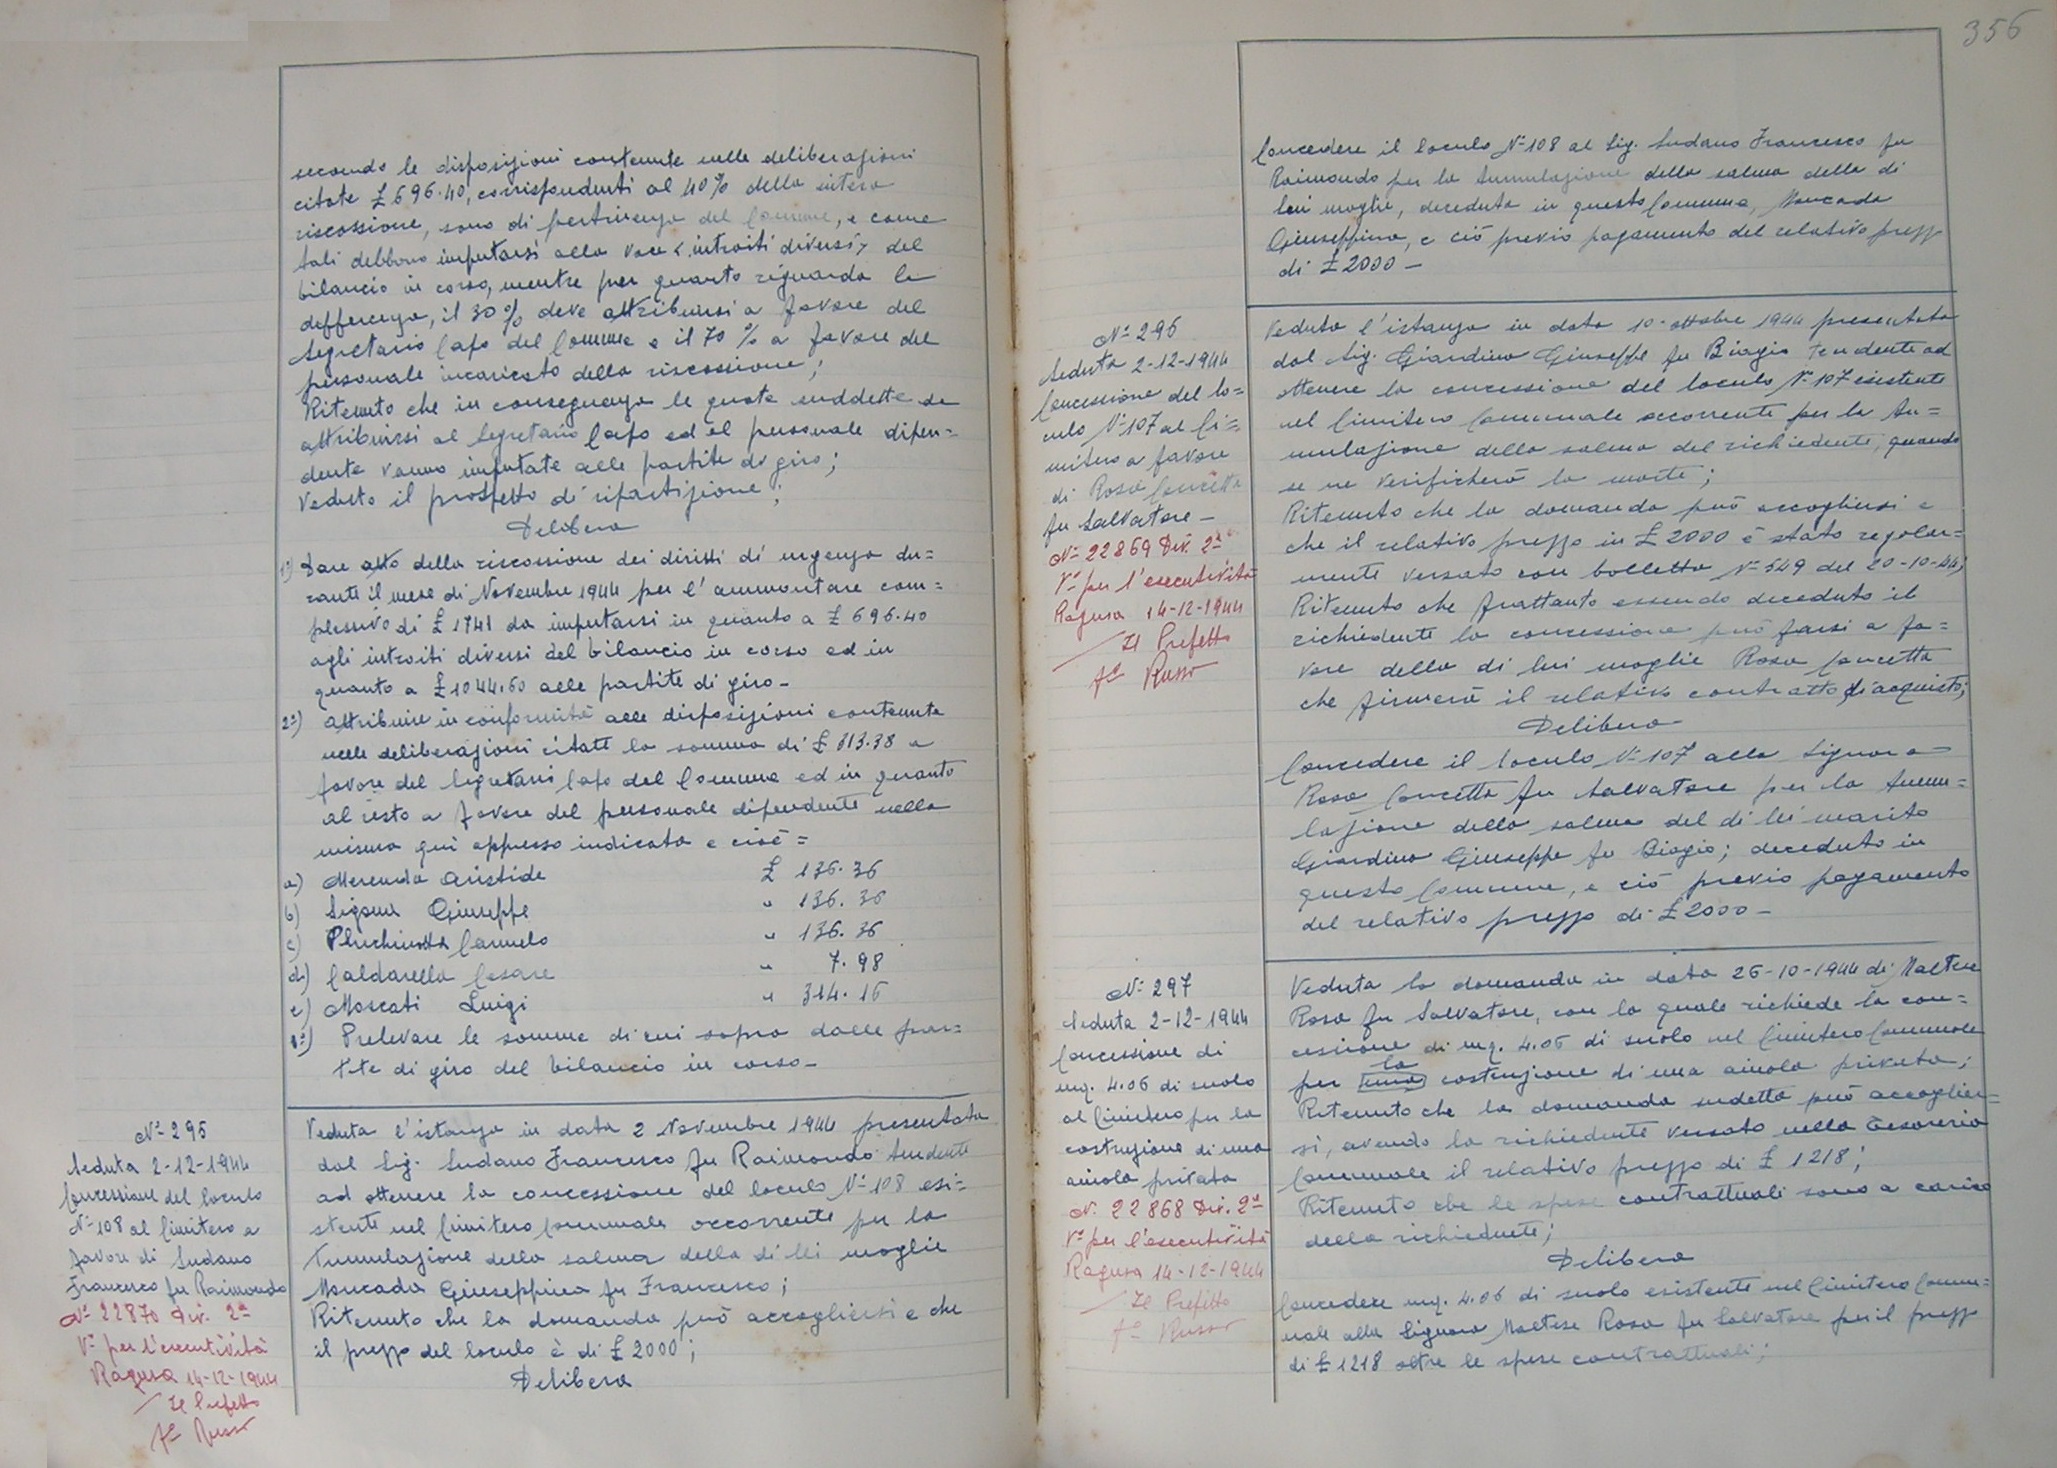 356
secondo le disposizioni contenute nelle deliberazioni
citate £ 696.40, corrispondenti al 40% della intera
riscossione, sono di pertinenza del Comune, e come
tali debbono imputarsi alla voce < introiti diversi > del
bilancio in corso, mentre per quanto riguarda la
differenza, il 30% deve attribuirsi a favore del
Segretario Capo del Comune e il 70% a favore del
personale incaricato della riscossione;
Ritenuto che in conseguenza le quote suddette da
attribuirsi al Segretario Capo ed al personale dipen=
dente vanno imputate alle partite di giro;
Veduto il prospetto di ripartizione;
Delibera
1°) Dare atto della riscossione dei diritti di urgenza du=
rante il mese di Novembre 1944 per l'ammontare com=
plessivo di £ 1741 da imputarsi in quanto a £ 696.40
agli introiti diversi del bilancio in corso ed in
quanto a £ 1044.60 alle partite di giro -
2°) Attribuire in conformità alle disposizioni contenute
nelle deliberazioni citate la somma di £ 313.38 a
favore del Segretario Capo del Comune ed in quanto
al resto a favore del personale dipendente nella
misura qui appresso indicata e cioè =
a) Merenda Aristide £ 136.36
b) Sigona Giuseppe " 136.36
c) Pluchinotta Carmelo " 136.36
d) Caldarella Cesare " 7.98
e) Moscati Luigi " 314.16
Prelevare le somme di cui sopra dalle par=
tite di giro del bilancio in corso -
N° 295
Seduta 2-12-1944
Concessione del loculo
N° 108 al Cimitero a
favore di Sudano
Francesco fu Raimondo
N° 22870 Div. 2ª
V° per l'esecutività
Ragusa 14-12-1944
Il Prefetto
F° Russo
Veduta l'istanza in data 2 Novembre 1944 presentata
dal Sig. Sudano Francesco fu Raimondo tendente
ad ottenere la concessione del loculo N° 108 esi=
stente nel Cimitero Comunale occorrente per la
tumulazione della salma della di lui moglie
Moncada Giuseppina fu Francesco;
Ritenuto che la domanda può accogliersi e che
il prezzo del loculo è di £ 2000;
Delibera
Concedere il loculo N° 108 al Sig. Sudano Francesco fu
Raimondo per la tumulazione della salma della di
lui moglie, deceduta in questo Comune, Moncada
Giuseppina, e ciò previo pagamento del relativo prezzo
di £ 2000 -
N° 296
Seduta 2-12-1944
Concessione del lo=
culo N° 107 al Ci=
mitero a favore
di Rosa Concetta
fu Salvatore -
N° 22869 Div. 2ª
V° per l'esecutività
Ragusa 14-12-1944
Il Prefetto
F° Russo
Veduta l'istanza in data 10 ottobre 1944 presentata
dal Sig. Giardina Giuseppe fu Biagio tendente ad
ottenere la concessione del loculo N° 107 esistente
nel Cimitero Comunale occorrente per la tu=
mulazione della salma del richiedente, quando
se ne verificherà la morte;
Ritenuto che la domanda può accogliersi e
che il relativo prezzo in £ 2000 è stato regolar=
mente versato con bolletta N° 549 del 20-10-44;
Ritenuto che frattanto essendo deceduto il
richiedente la concessione può farsi a fa=
vore della di lui moglie Rosa Concetta
che firmerà il relativo contratto d'acquisto;
Delibera
Concedere il loculo N° 107 alla Signora
Rosa Concetta fu Salvatore per la tumu=
lazione della salma del di lei marito
Giardina Giuseppe fu Biagio; deceduto in
questo Comune, e ciò previo pagamento
del relativo prezzo di £ 2000 -
N° 297
Seduta 2-12-1944
Concessione di
mq. 4.06 di suolo
al Cimitero per la
costruzione di una
aiuola privata
N. 22868 Div. 2ª
V° per l'esecutività
Ragusa 14-12-1944
Il Prefetto
F° Russo
Veduta la domanda in data 26-10-1944 di Maltese
Rosa fu Salvatore, con la quale richiede la con=
cessione di mq. 4.06 di suolo nel Cimitero Comunale
per la costruzione di una aiuola privata;
Ritenuto che la domanda sudetta può accoglier=
si, avendo la richiedente versato nella Tesoreria
Comunale il relativo prezzo di £ 1218;
Ritenuto che le spese contrattuali sono a carico
della richiedente;
Delibera
Concedere mq. 4.06 di suolo esistente nel Cimitero Comu=
nale alla Signora Maltese Rosa fu Salvatore per il prezzo
di £ 1218 oltre le spese contrattuali;